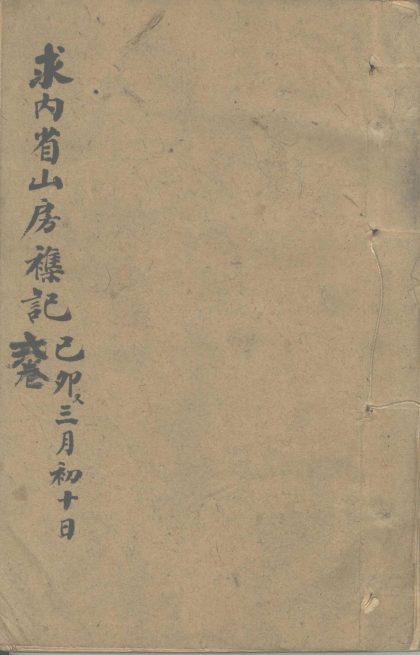 求内省山房襍記
己卯三月初十日
卷